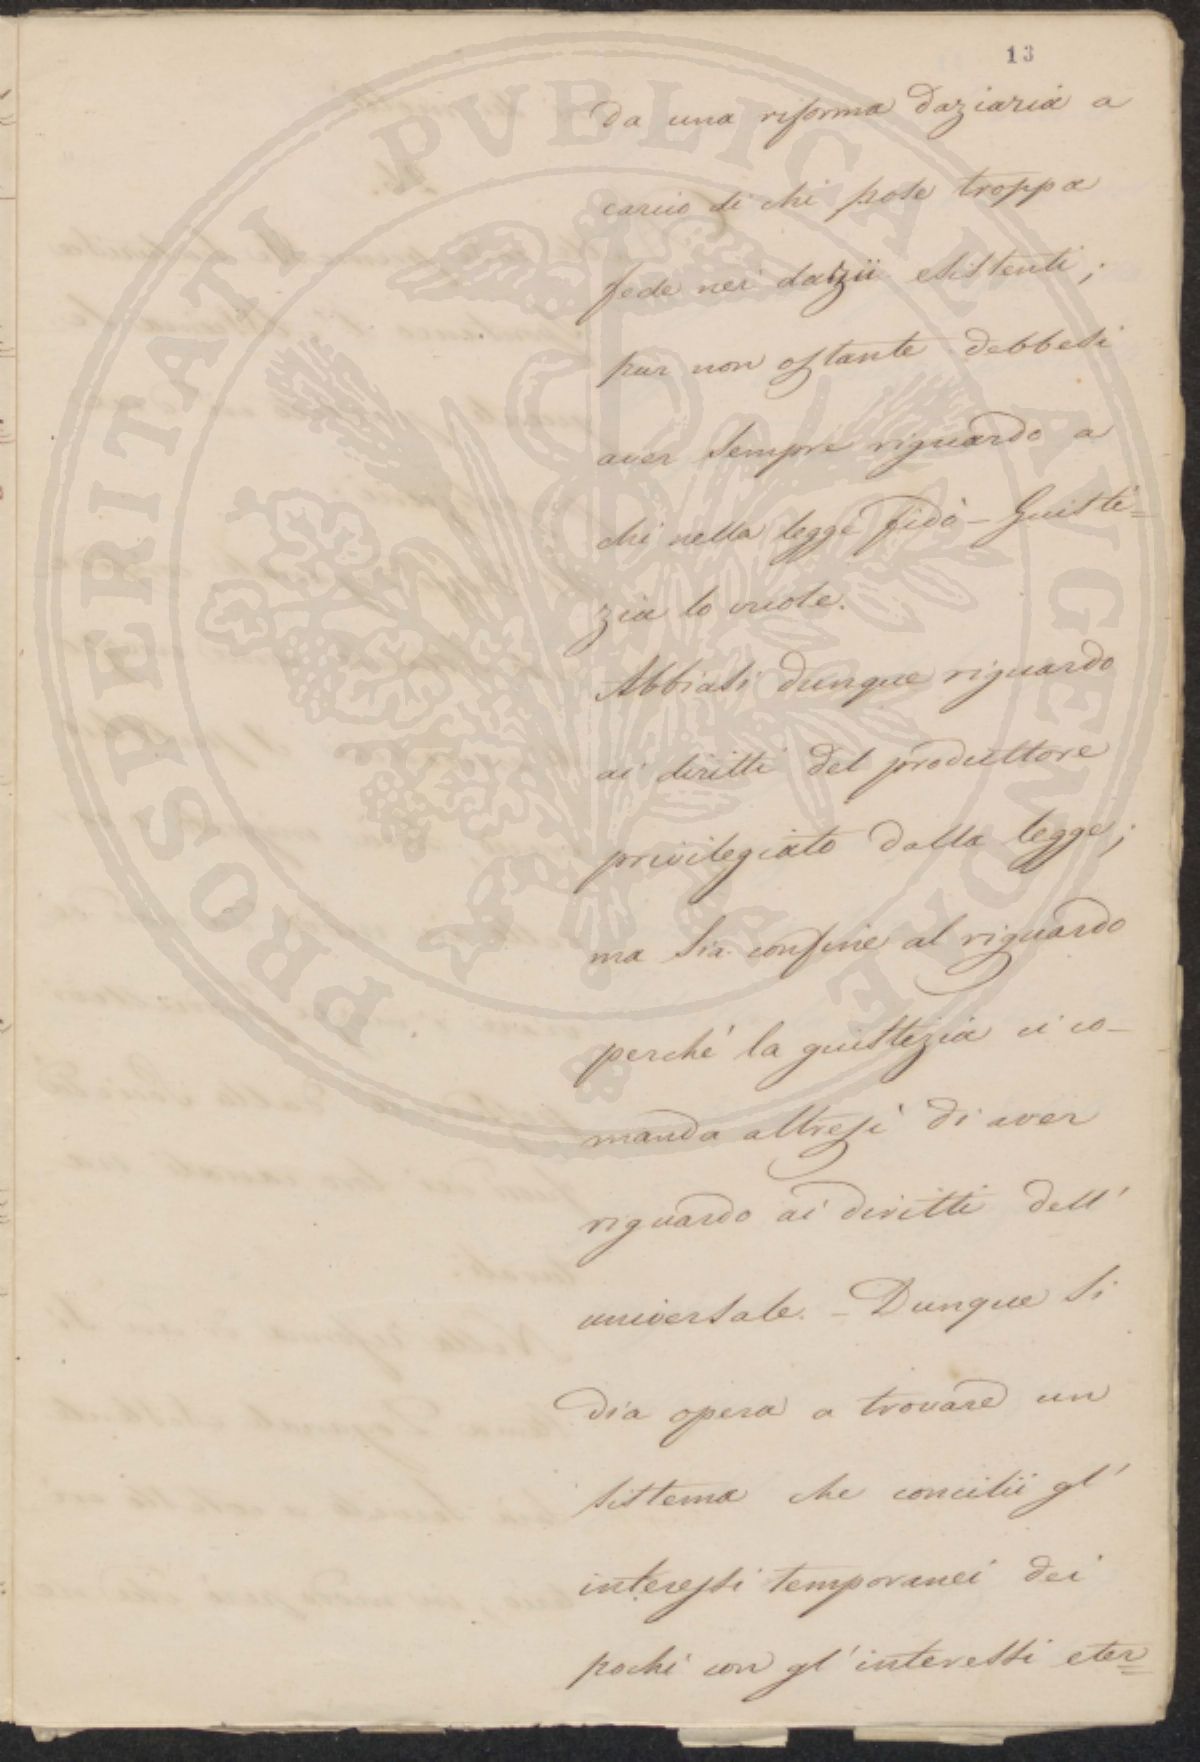 13
PROSPERITATI PVBLICAE AVGENDAE
da una riforma daziaria a
carico di chi pose troppa
fede nei datzii esistenti;
pur non ostante debbesi
aver sempre riguardo a
chi nella legge fidò - Giusti=
zia lo vuole.
Abbiasi dunque riguardo
ai diritti del produttore
privilegiato dalla legge;
ma sia confine al riguardo
perché la giustizia ci co-
manda altresì di aver
riguardo ai diritti dell'
universale. - Dunque si
dia opera a trovare un
sistema che concilii gl'
interessi temporanei dei
pochi con gl'interessi eter=